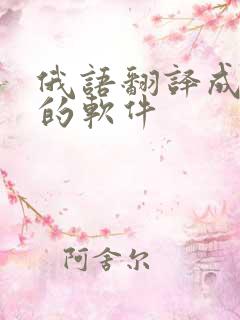 俄語翻譯成
的軟件
阿舍尔